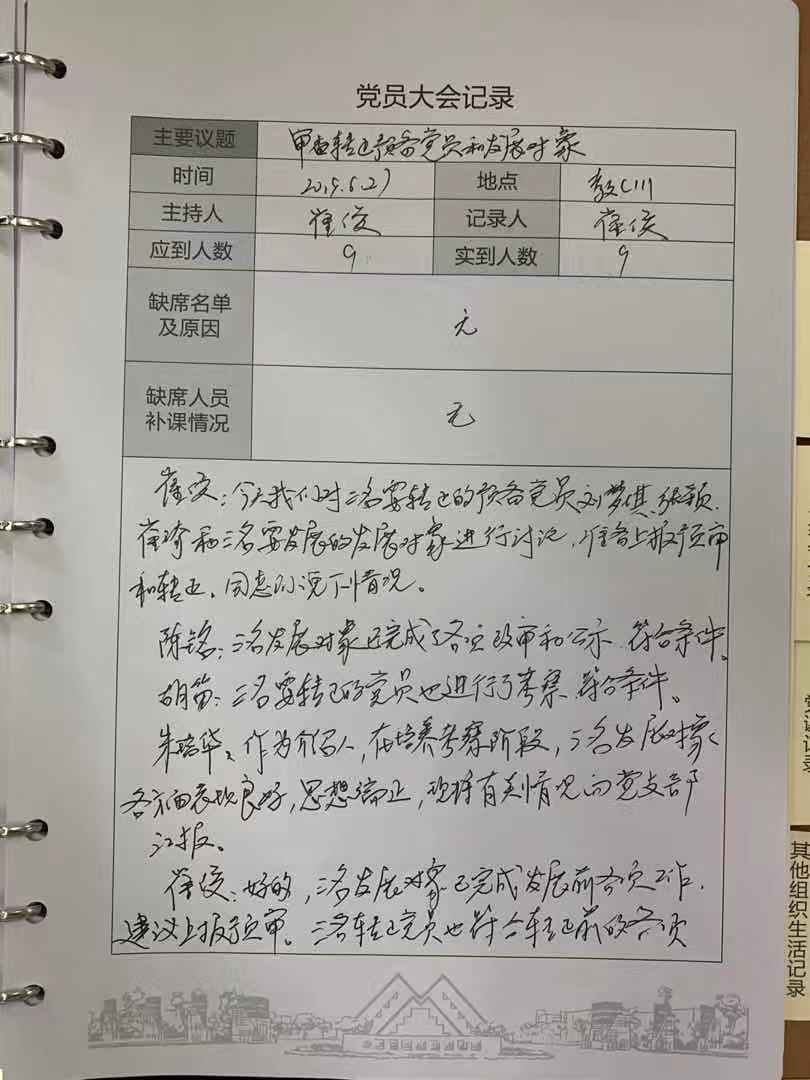 党员大会记录
主要议题 审查转正预备党员和发展对象
时间 2019.6.27 地点 教C111
主持人 崔俊 记录人 崔俊
应到人数 9 实到人数 9
缺席名单
及原因 无
缺席人员
补课情况 无
崔俊：今天我们对三名要转正的预备党员刘梦琪、张颖、
崔 和三名要发展的发展对象进行讨论，准备上报预审
和转正。同志们说下情况。
陈铭：三名发展对象已完成了各项政审和公示，符合条件。
胡笛：三名要转正的党员也进行了考察，符合条件。
朱晓华：作为介绍人，在培养考察阶段，三名发展对象
各方面表现良好，思想端正，现将有关情况向党支部
汇报。
崔俊：好的，三名发展对象已完成发展前各项工作，
建议上报预审。三名转正党员也符合转正前的各项
其他组织生活记录
党课记录